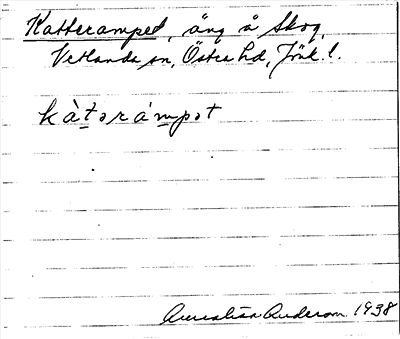 Katterampet, äng å Skog,
Vetlanda sn, Östra hd, Jönk. l.
kàt̲ərám̲pət
Annalisa Anderson 1938